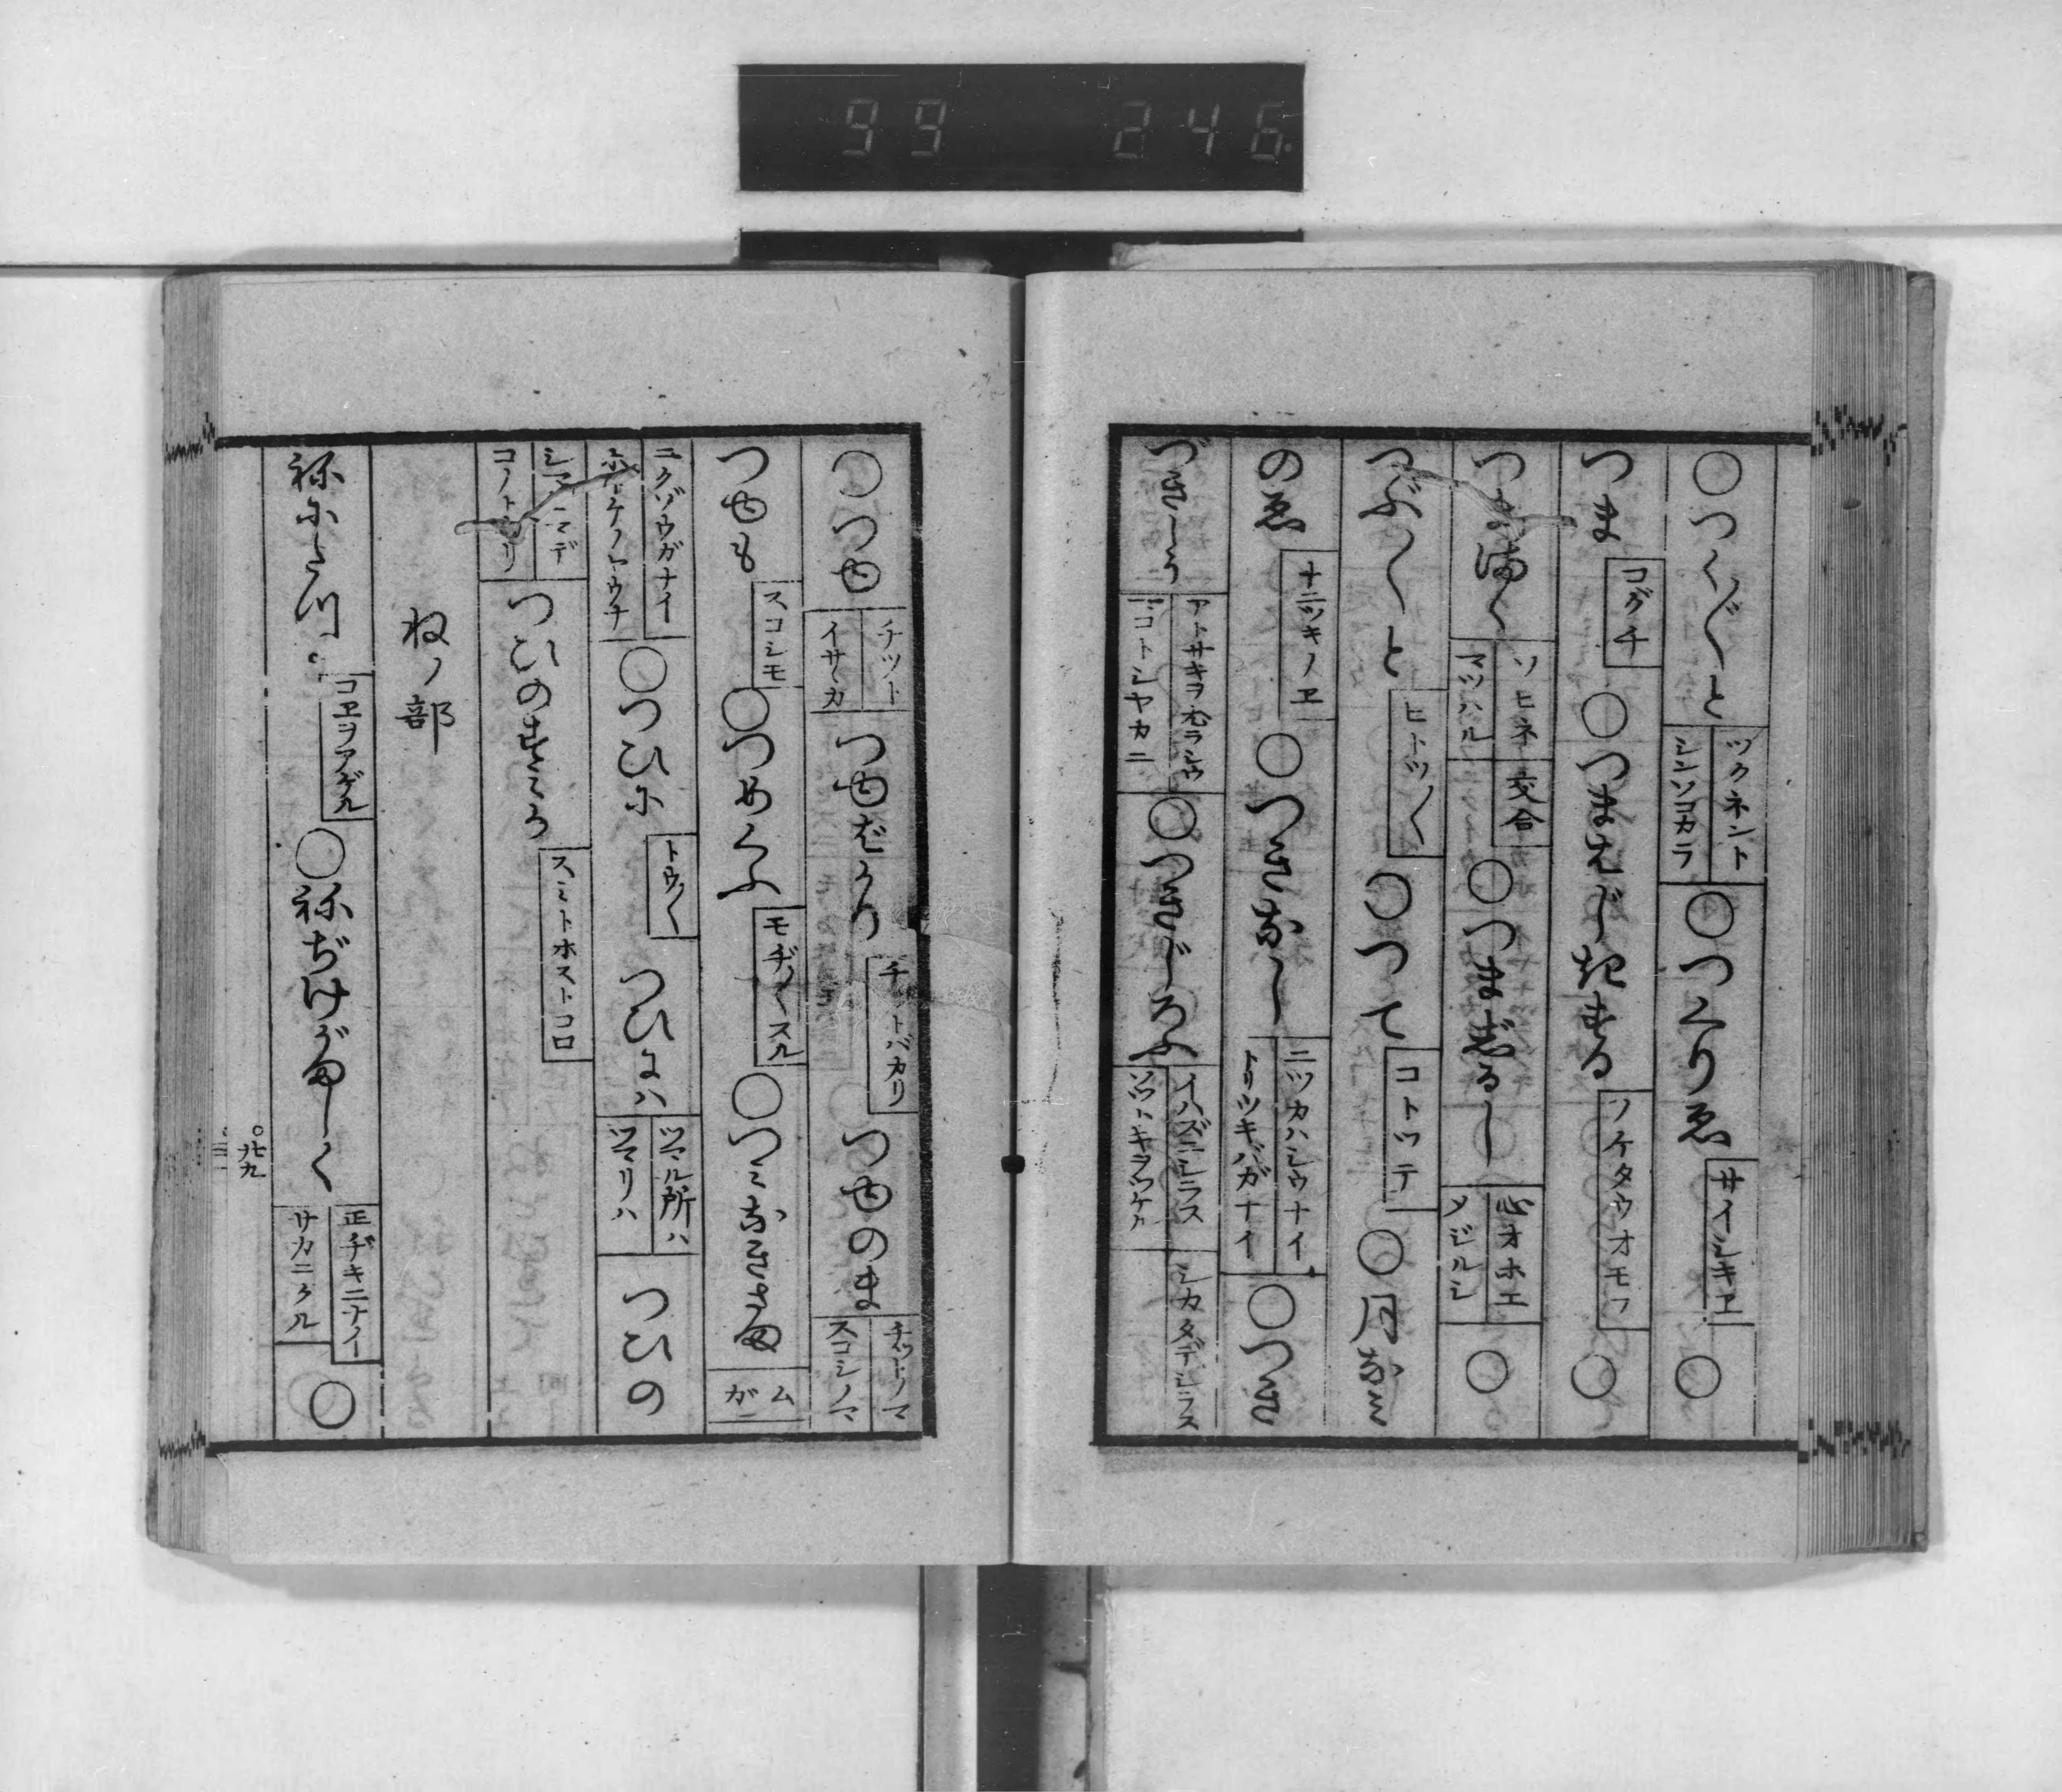 99 246.
○つく〴〵と ツクネント シンソコカラ ○つくりゑ サイシキヱ ○
つま コグチ ○つまはじきする ノケタウオモフ ○
つままく ソヒネ マツハル 交合 ○つまじるし 心オホエ メジルシ ○
つぶ〳〵と ヒトツ〳〵 ○つて コトツテ ○月なみ
のゑ 十二ツキノヱ ○つきなし ニツカハシウナイ トリツキバガナイ ○つき
づきしう アトサキヲ マコトシヤカニ ○つきじろふ イハズニシラス シカタデシラス
○つゆ チツト イサヽカ つゆばかり チツトバカリ つゆのま チツトノマ スコシノマ
つゆも スコシモ ○つめくふ モヂ〳〵スル ○つみなきさま ムガ
ニクゾウガナイ ホトケノヤウナ ○つひに トウ〳〵 つひには ツマル所ハ ツマリハ つひの
シマヒマデ コノトホリ つひのすみか スミトホストコロ
ねノ部
ねにたつ コヱヲアゲル ○ねぢけがましく 正ヂキニナイ サカニクル ○
○廿九